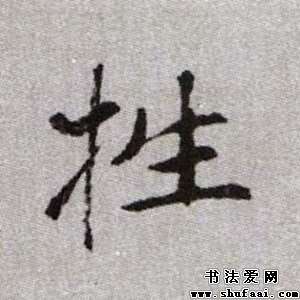 牲
书法爱网
www.shufaai.com